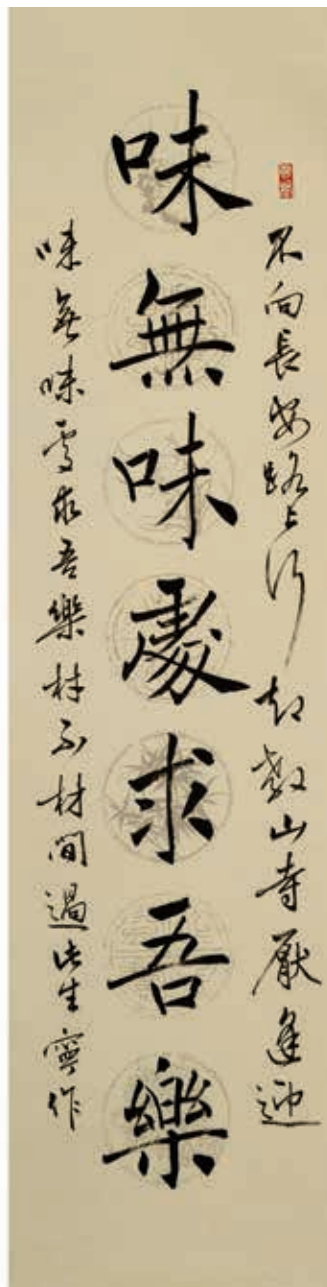 不向長安路上行却教山寺厭逢迎
味無味處求吾樂
味無味處求吾樂材不材間過此生寧作